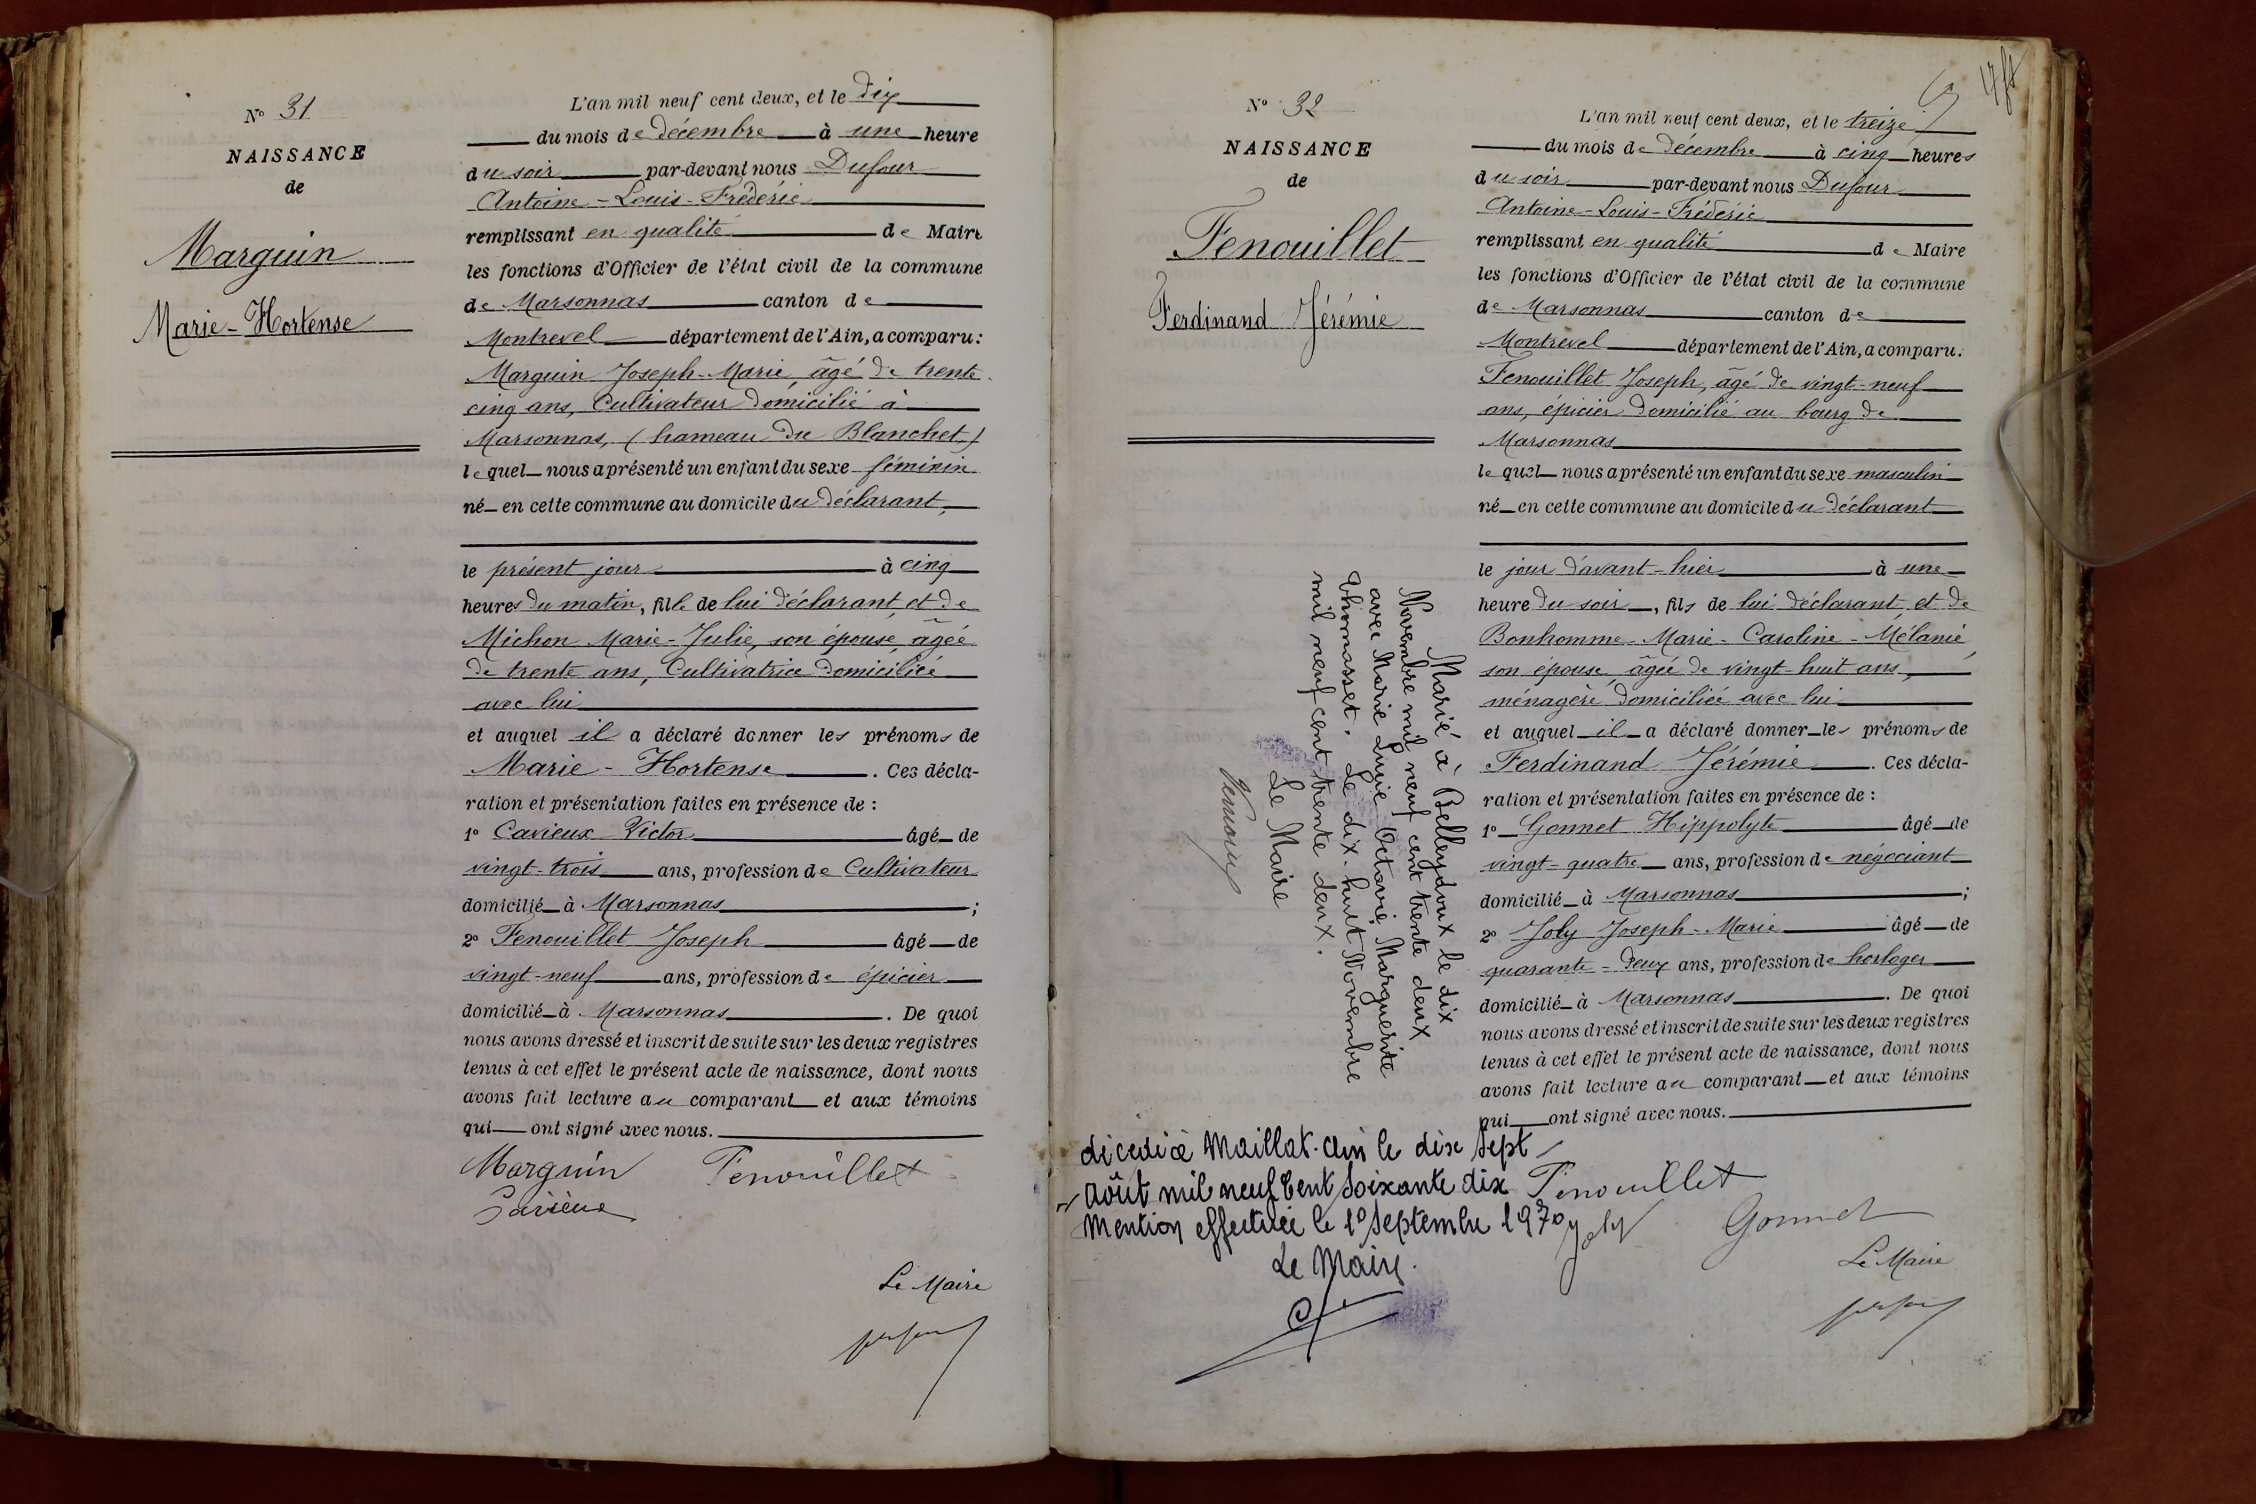 N° 31
NAISSANCE
de
Marguin
Marie-Hortense
L'an mil neuf cent deux, et le dix
du mois de décembre à une heure
du soir par-devant nous Dufour
Antoine-Louis-Frédéric
remplissant en qualité de Maire
les fonctions d'Officier de l'état civil de la commune
de Marsonnas canton de
Montrevel département de l'Ain, a comparu:
Marguin Joseph-Marie, âgé de trente
cinq ans, Cultivateur domicilié à
Marsonnas, (hameau du Blanchet)
lequel nous a présenté un enfant du sexe féminin
né en cette commune au domicile du déclarant,
le présent jour à cinq
heures du matin, fille de lui déclarant et de
Michon Marie-Julie, son épouse, âgée
de trente ans, Cultivatrice domiciliée
avec lui
et auquel il a déclaré donner les prénoms de
Marie-Hortense. Ces décla-
ration et présentation faites en présence de :
1° Cavieux Victor âgé de
vingt-trois ans, profession de Cultivateur
domicilié à Marsonnas ;
2° Fenouillet Joseph âgé de
vingt-neuf ans, profession de épicier
domicilié à Marsonnas. De quoi
nous avons dressé et inscrit de suite sur les deux registres
tenus à cet effet le présent acte de naissance, dont nous
avons fait lecture au comparant et aux témoins
qui ont signé avec nous.
Marguin Fenouillet
Le Maire
17
N° 32
NAISSANCE
de
Fenouillet
Ferdinand Jérémie
L'an mil neuf cent deux, et le treize
du mois de décembre à cinq heures
du soir par-devant nous Dufour
Antoine-Louis-Frédéric
remplissant en qualité de Maire
les fonctions d'Officier de l'état civil de la commune
de Marsonnas canton de
Montrevel département de l'Ain, a comparu:
Fenouillet Joseph, âgé de vingt-neuf
ans, épicier domicilié au bourg de
Marsonnas
lequel nous a présenté un enfant du sexe masculin
né en cette commune au domicile du déclarant
le jour d'avant-hier à une
heure du soir, fils de lui déclarant et de
Bonhomme Marie-Caroline-Mélanie,
son épouse, âgée de vingt-huit ans,
ménagère, domiciliée avec lui
et auquel il a déclaré donner les prénoms de
Ferdinand Jérémie. Ces décla-
ration et présentation faites en présence de :
1° Gonnet Hippolyte âgé de
vingt-quatre ans, profession de négociant
domicilié à Marsonnas ;
2° Joly Joseph-Marie âgé de
quarante-deux ans, profession de horloger
domicilié à Marsonnas. De quoi
nous avons dressé et inscrit de suite sur les deux registres
tenus à cet effet le présent acte de naissance, dont nous
avons fait lecture au comparant et aux témoins
qui ont signé avec nous.
Fenouillet
Joly Gonnet
Le Maire
Marié à Belleydoux le dix
Novembre mil neuf cent trente deux
avec Marie Lucie Octavie Marguerite
Thomasset. Le dix-huit Novembre
mil neuf cent trente deux.
Le Maire
décédé à Maillat. Ain le dix sept
Août mil neuf Cent Soixante dix
Mention effectuée le 1° Septembre 1970
Le Maire.